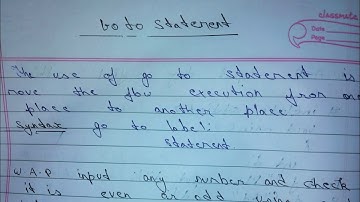 Go to statement
classmate
Date
Page
The use of go to statement is
move the flow execution from one
place to another place
Syntax go to label:
statement
W.A.P input any number and check
it is even or odd using